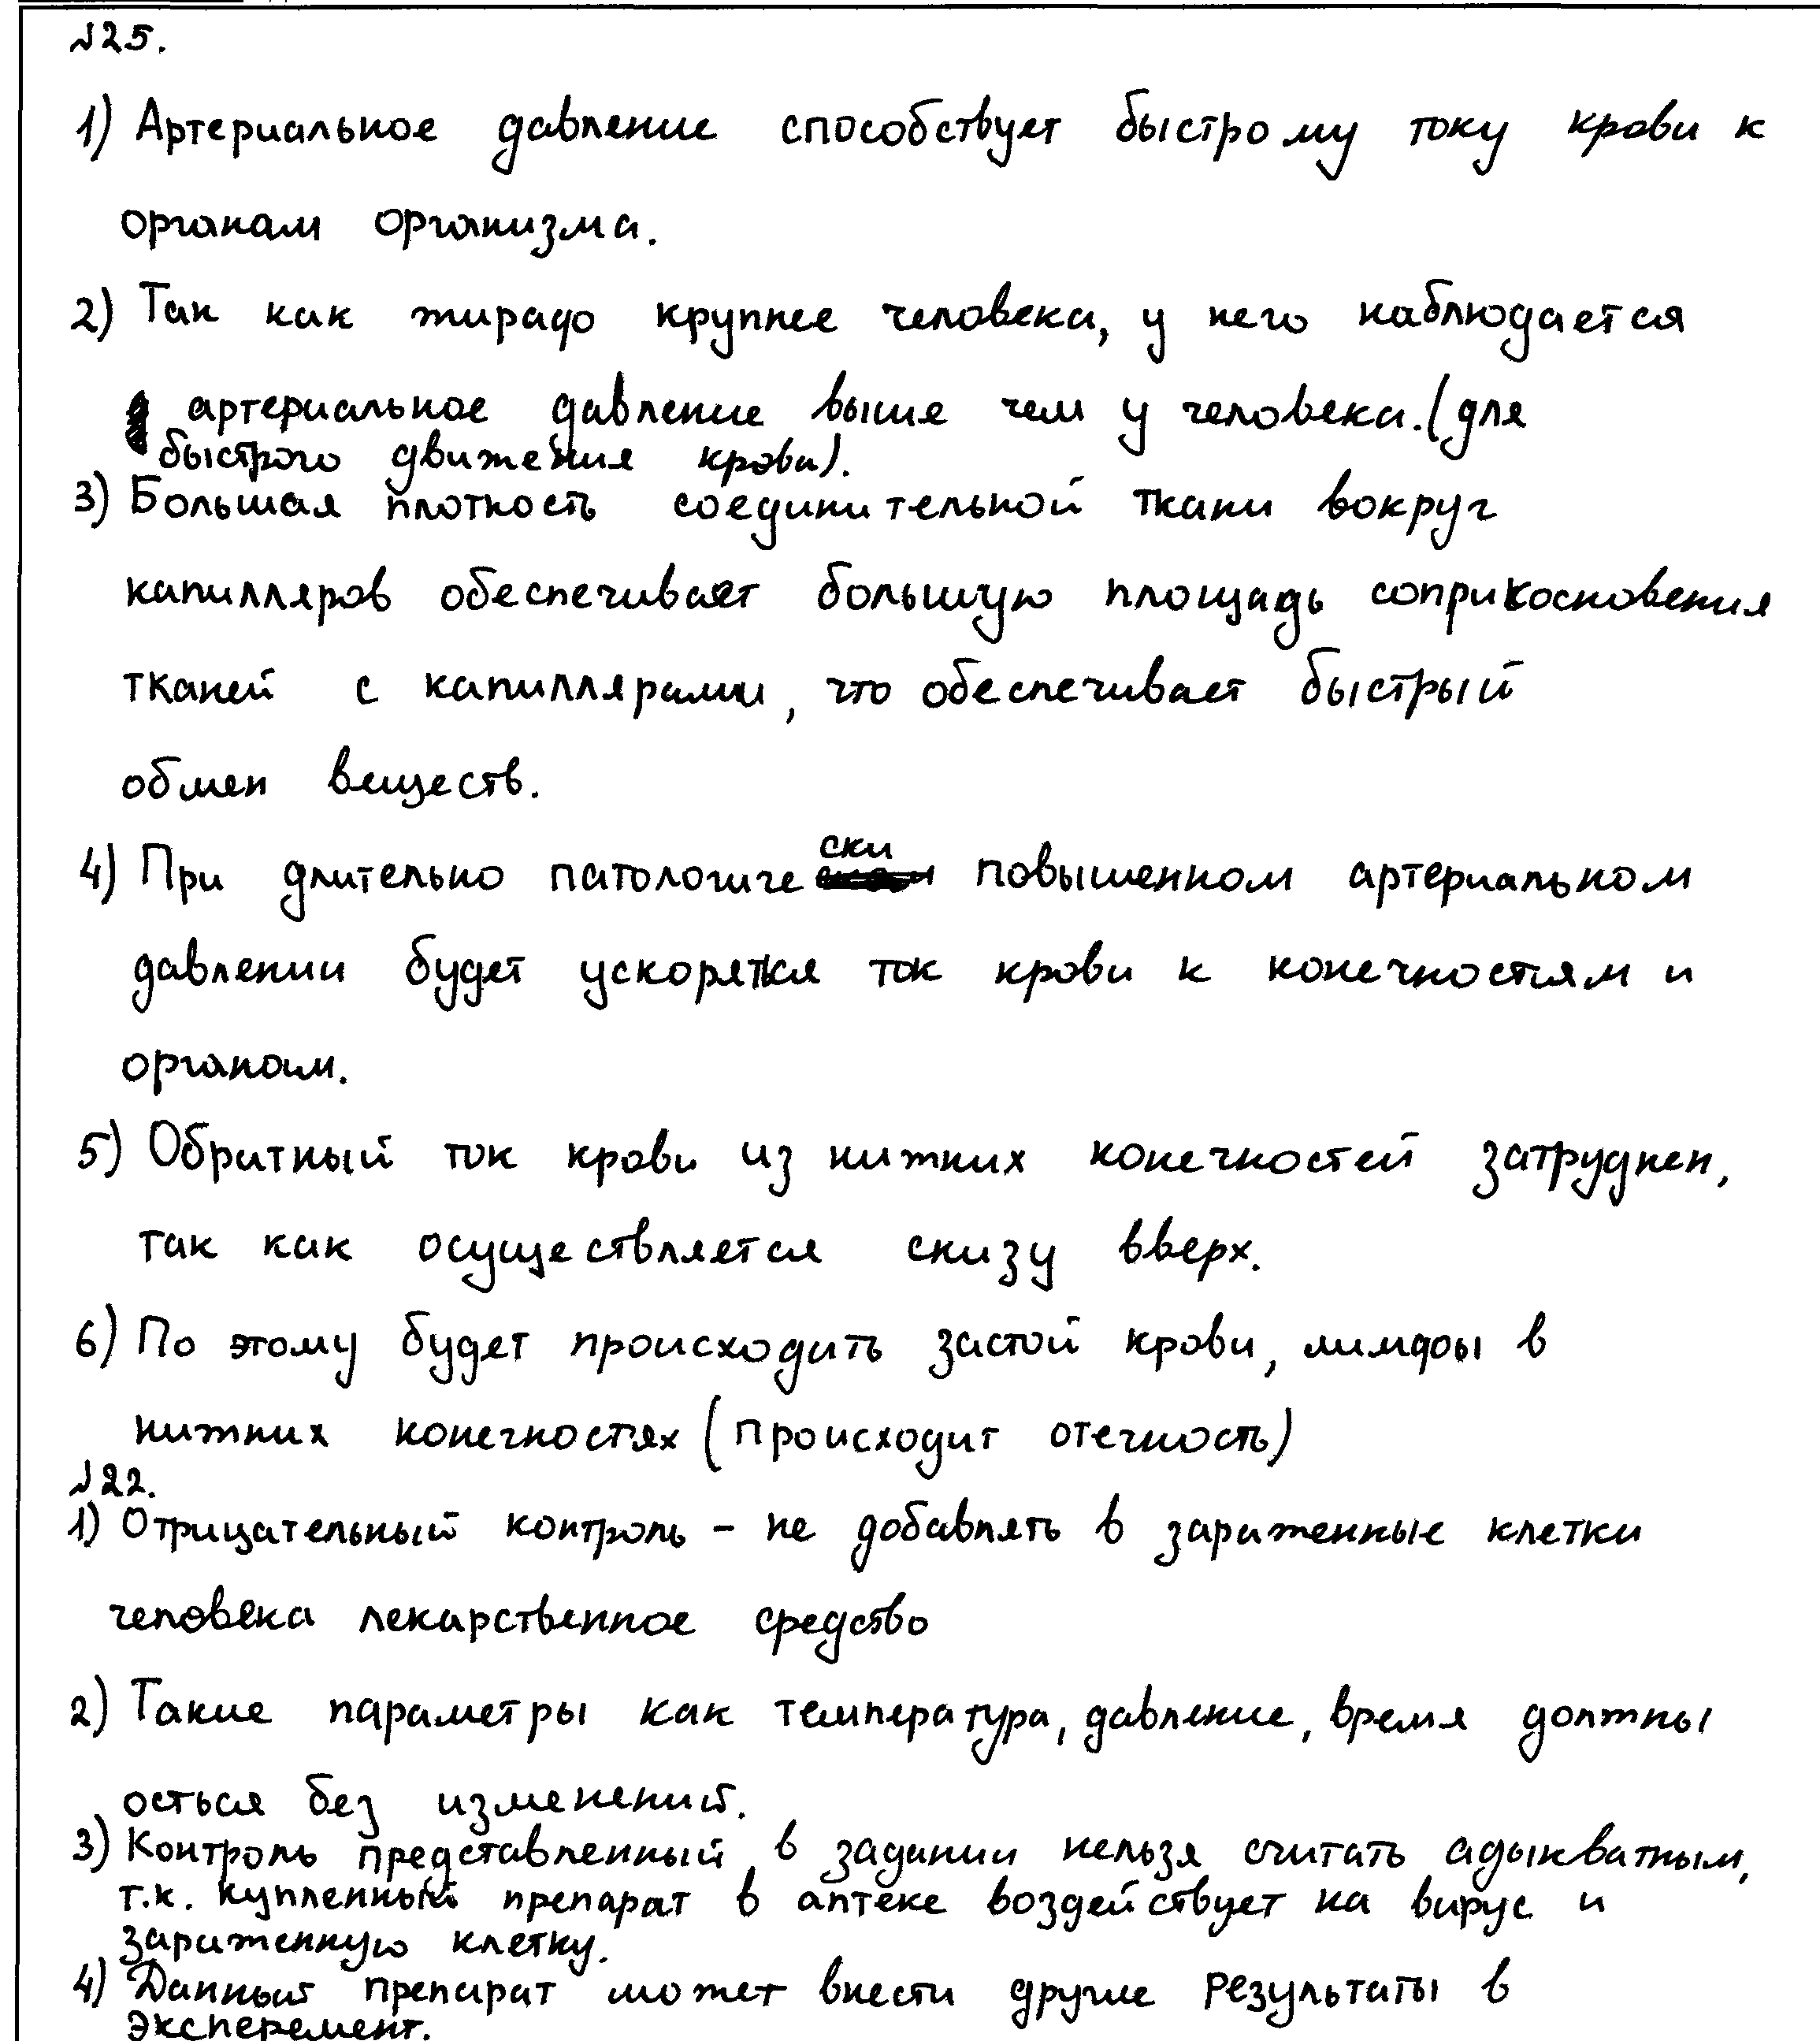 №25.
1) Артериальное давление способствует быстрому току крови к
органам организма.
2) Так как жирафо крупнее человека, у него наблюдается
артериальное давление выше чем у человека. (для
быстрого движения крови).
3) Большая плотность соединительной ткани вокруг
капилляров обеспечивает большую площадь соприкосновения
тканей с капиллярами, что обеспечивает быстрый
обмен веществ.
4) При длительно патологически повышенном артериальном
давлении будет ускорятся ток крови к конечностям и
органам.
5) Обратный ток крови из нижних конечностей затруднен,
так как осуществляется снизу вверх.
6) По этому будет происходить застой крови, лимфы в
нижних конечностях (происходит отечность)
№22.
1) Отрицательный контроль - не добавлять в зараженные клетки
человека лекарственное средство
2) Такие параметры как температура, давление, время должны
осться без изменений.
3) Контроль представленный в задании нельзя считать адыкватным,
т.к. купленный препарат в аптеке воздействует на вирус и
зараженную клетку.
4) Данный препарат может внести другие результаты в
эксперемент.